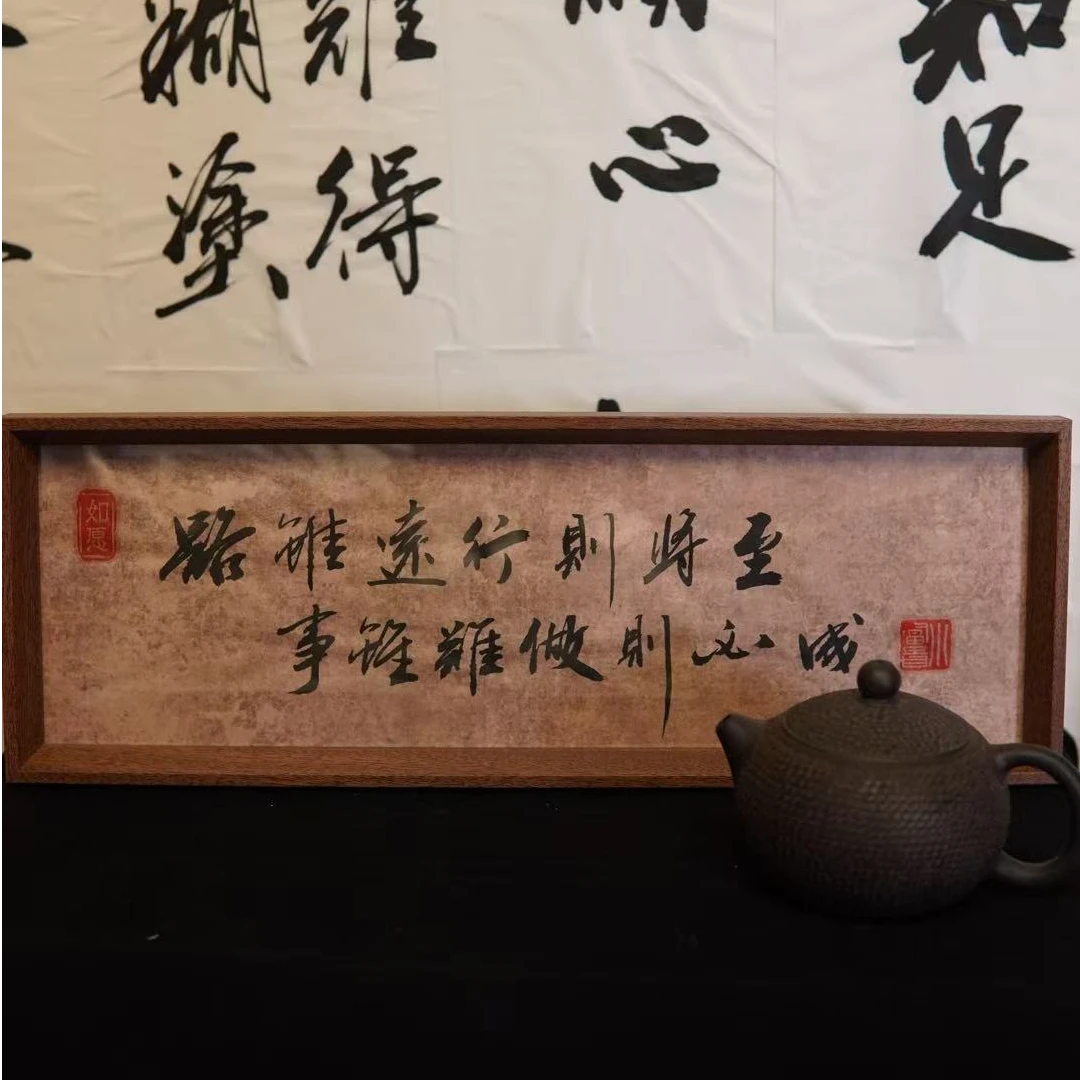 知足
心
難得
糊塗
如愿
路雖遠行則將至
事雖難做則必成